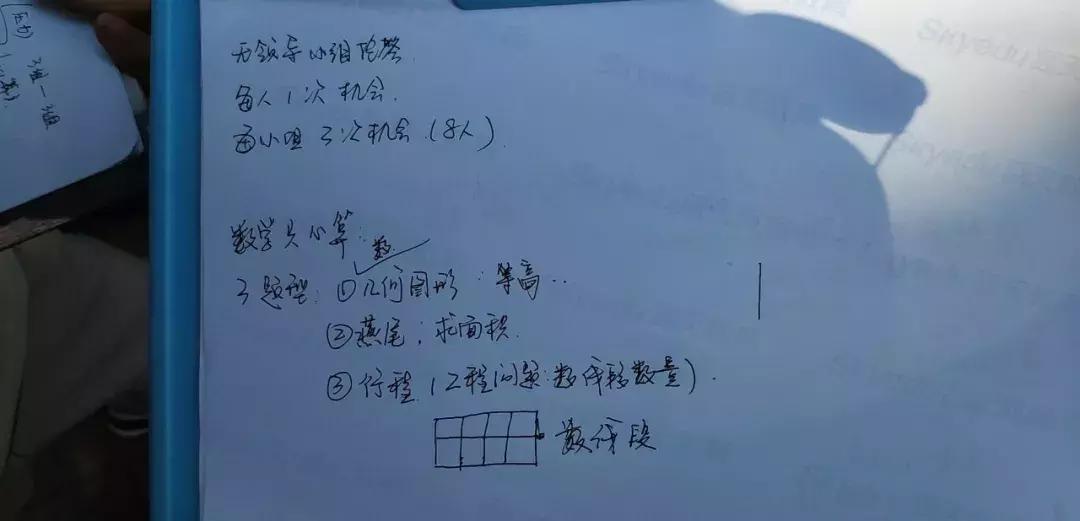 无领导小组
每人1次机会.
每小组3次机会(8人).
数学只心算:
数
3题型: ①几何图形: 等高..
②燕尾; 求面积.
③行程, (工程问题: 数 数量).
数线段
3组一组
Skyedu